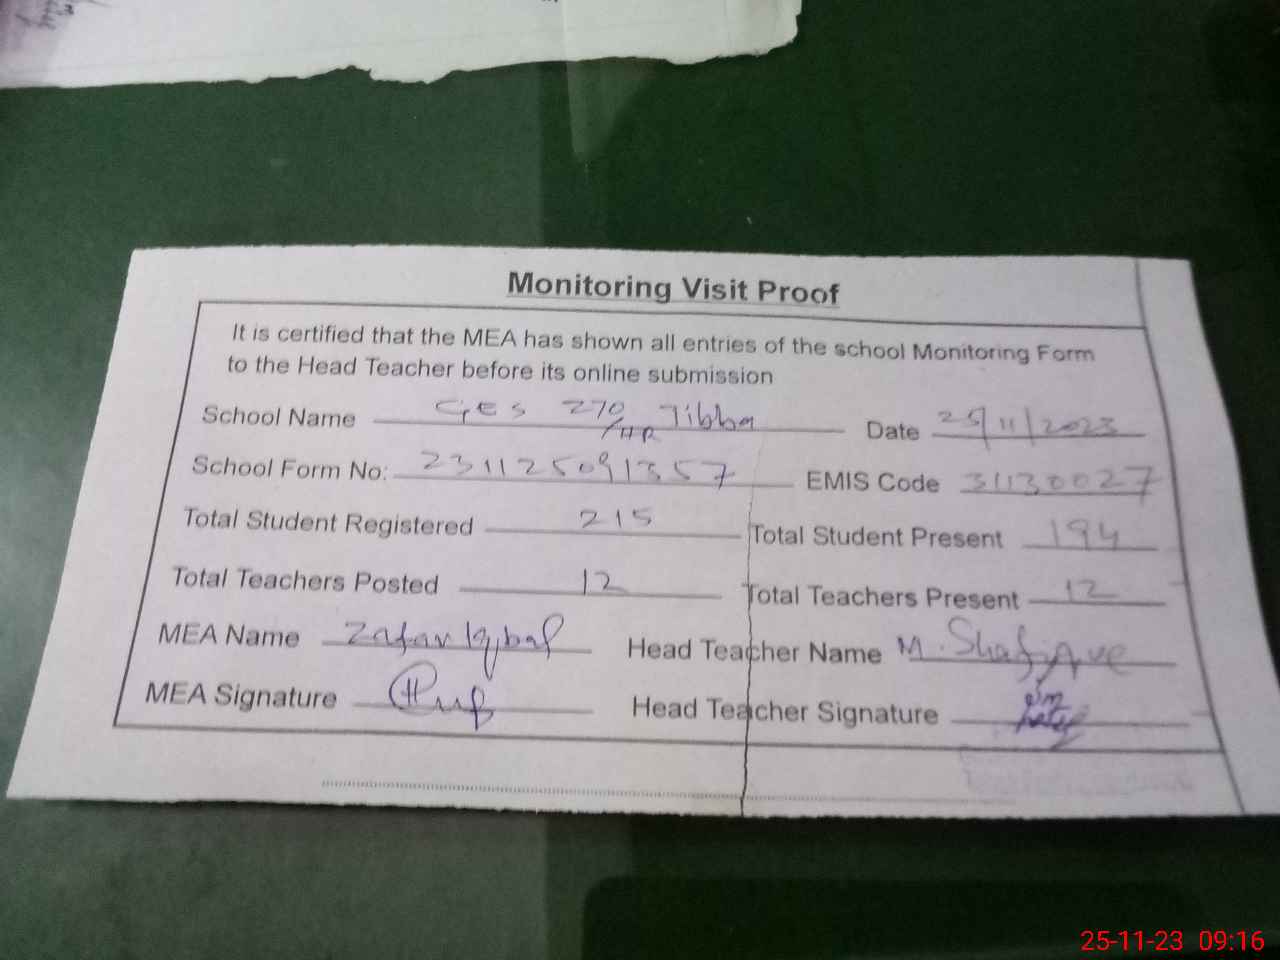 Monitoring Visit Proof
It is certified that the MEA has shown all entries of the school Monitoring Form
to the Head Teacher before its online submission
School Name GES 270/HR Tibba Date 25/11/2023
School Form No: 231125091357 EMIS Code 31130027
Total Student Registered 215 Total Student Present 194
Total Teachers Posted 12 Total Teachers Present 12
MEA Name Zafar Iqbal Head Teacher Name M. Shafique
MEA Signature Head Teacher Signature
25-11-23 09:16